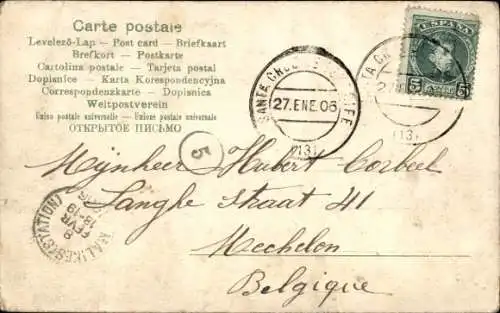 Carte postale
Levelező-Lap — Post card — Briefkaart
Brefkort — Postkarte
Cartolina postale — Tarjeta postal
Dopisnice - Karta Korespondencyjna
Correspondenzkarte — Dopisnica
Weltpostverein
Union postale universelle — Unione postale universale
ОТКРЫТОЕ ПИСЬМО
ESPAÑA
5 5
SANTA CRUZ DE TENERIFE
27.ENE.06
(13)
SANTA
(13)
5
Mijnheer Hubert Corbeel
Langhe Straat 41
Mechelon
Belgique
MALINES (STATION)
8
FEVR
18-19